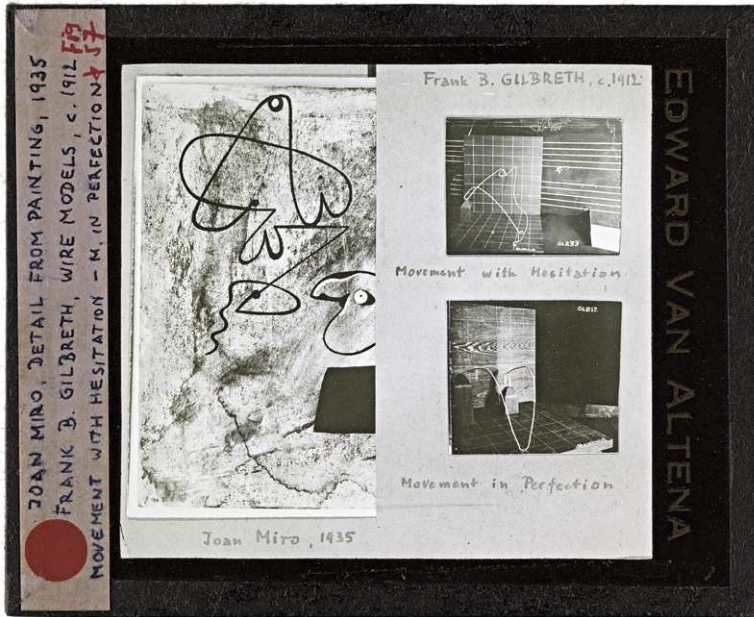 JOAN MIRO, DETAIL FROM PAINTING, 1935
FRANK B. GILBRETH, WIRE MODELS, c. 1912 Fig
MOVEMENT WITH HESITATION – M. IN PERFECTION 57
Frank B. GILBRETH, c.1912
Movement with Hesitation
Movement in Perfection
Joan Miro, 1935
EDWARD VAN ALTENA